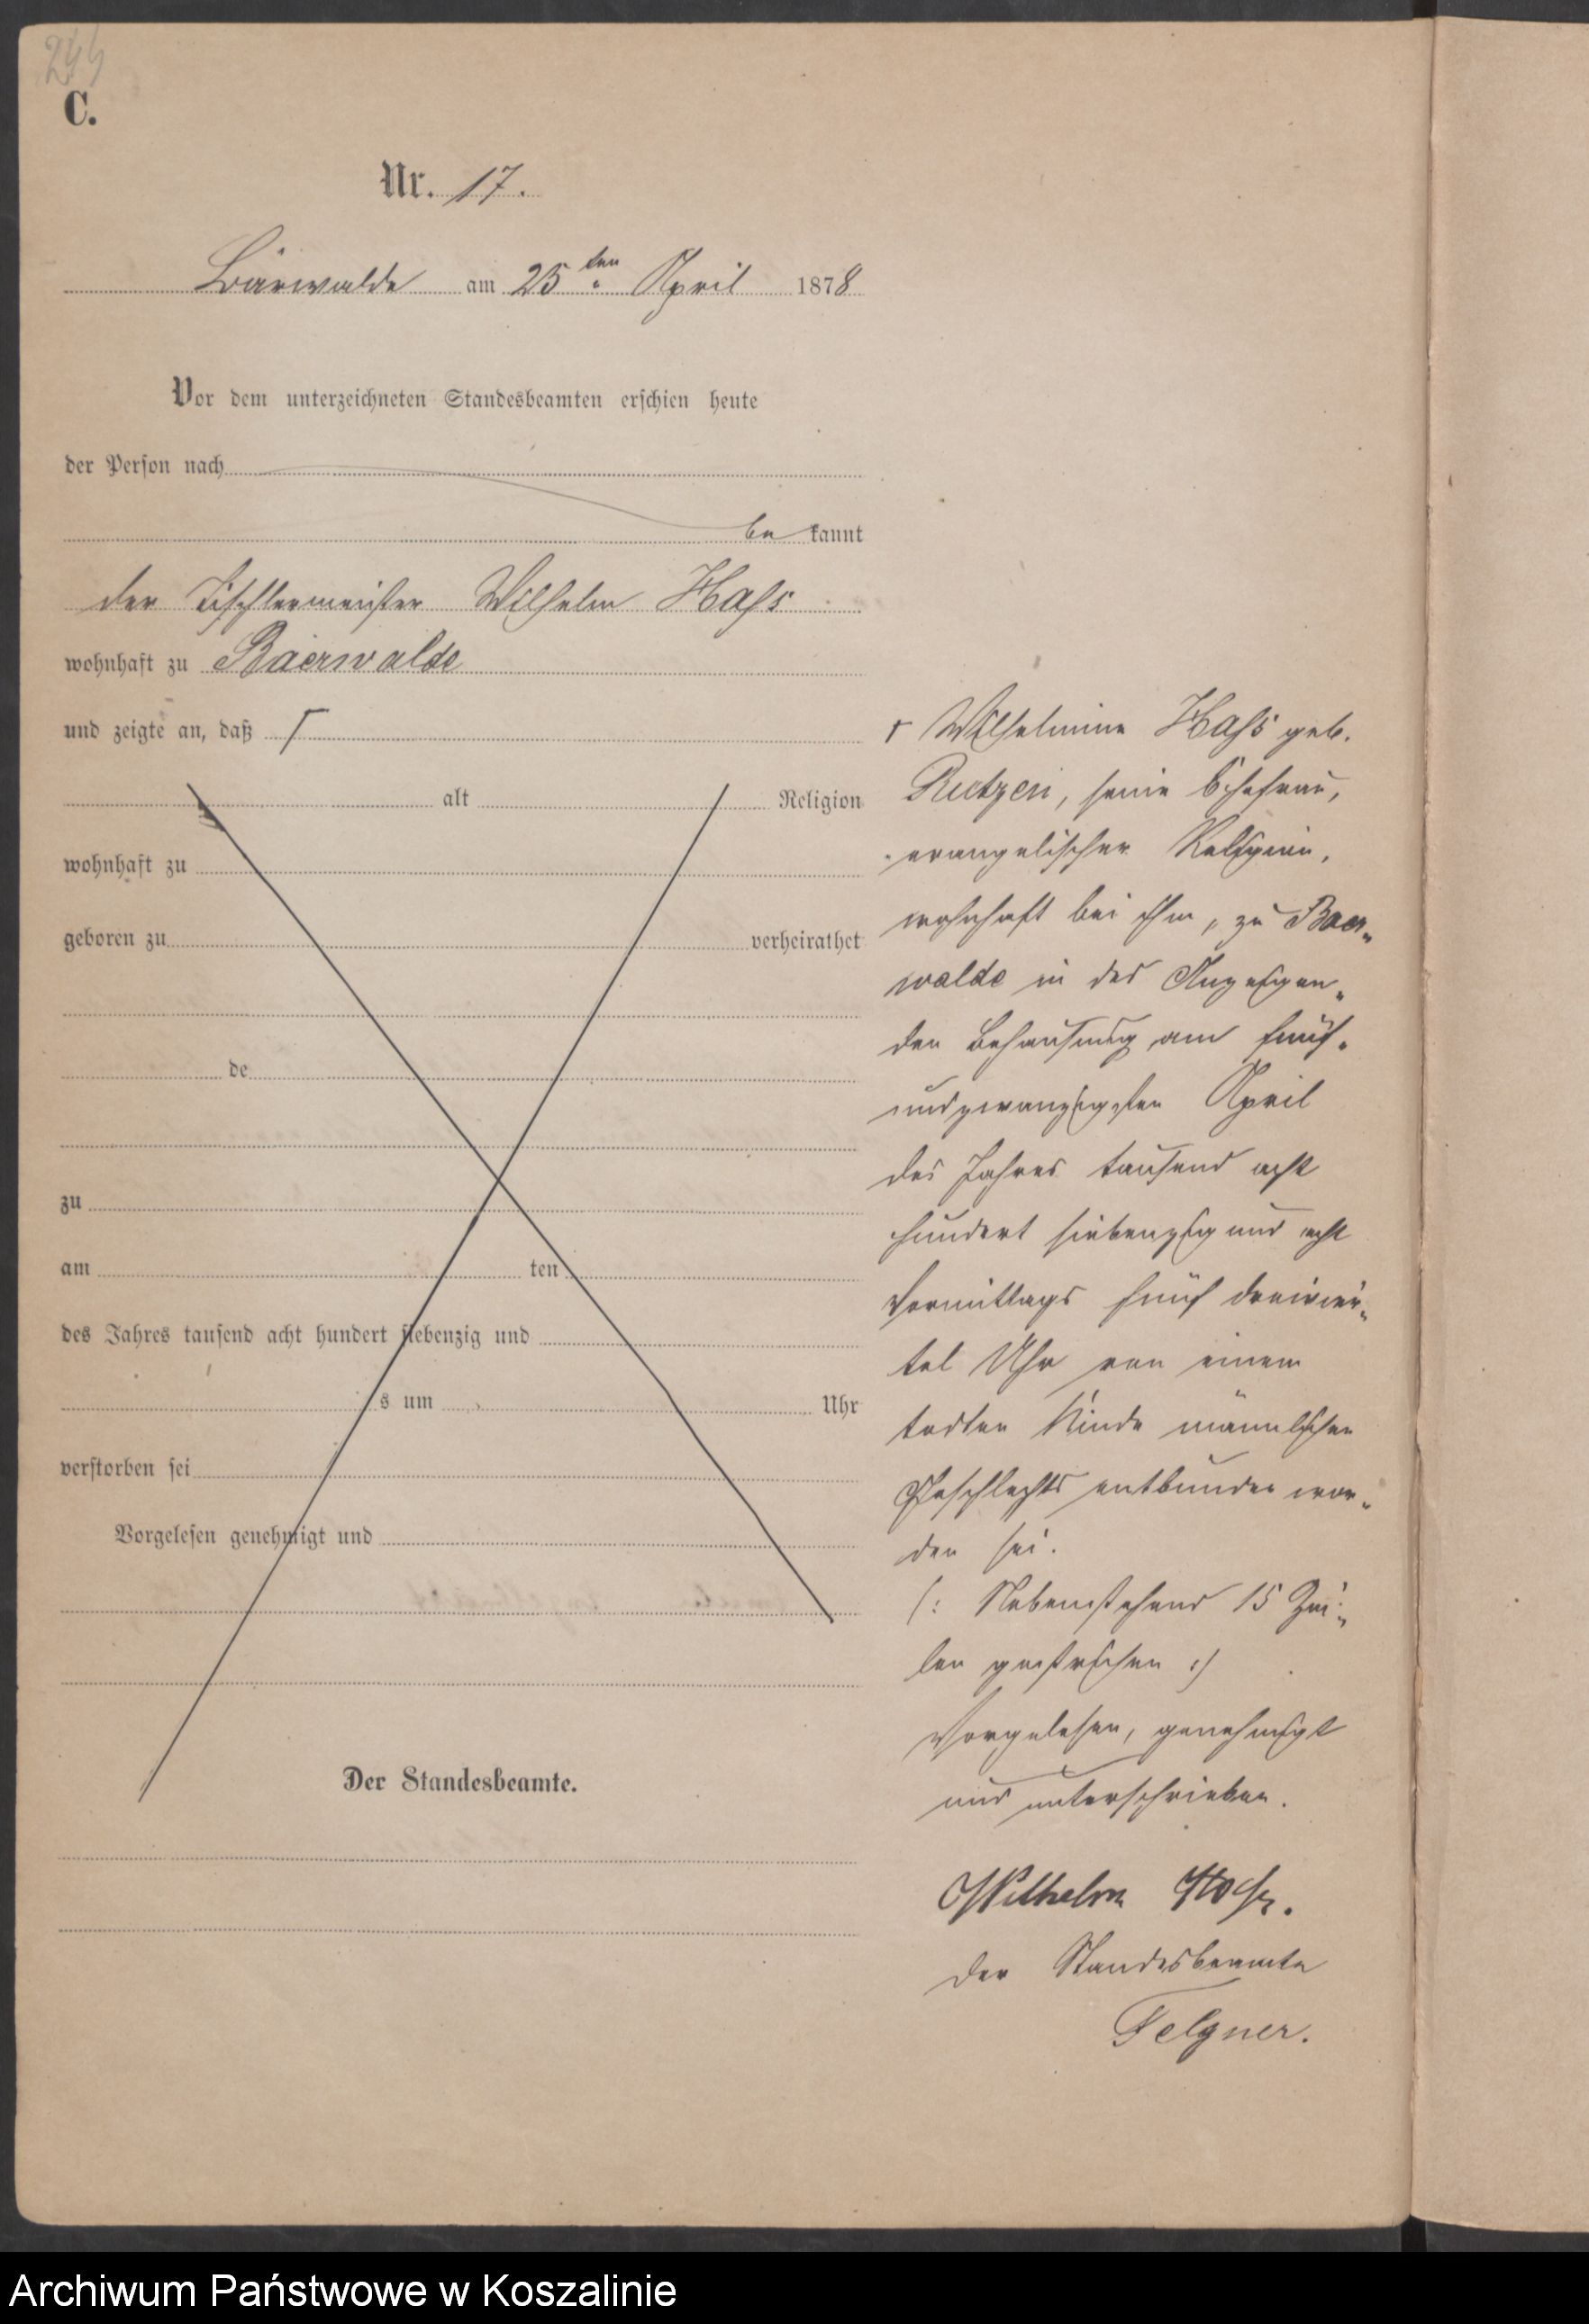 244
C.
Nr. 17.
Bärwalde am 25ten April 1878
Vor dem unterzeichneten Standesbeamten erschien heute
der Person nach
be kannt
der Tischlermeister Wilhelm Hass
wohnhaft zu Baerwalde
und zeigte an, daß Γ
alt Religion
wohnhaft zu
geboren zu verheirathet
de
zu
am ten
des Jahres tausend acht hundert siebenzig und
s um Uhr
verstorben sei
Vorgelesen genehmigt und
Der Standesbeamte.
Γ Wilhelmine Hass geb.
seine Ehefrau,
evangelischer Religion,
wohnhaft bei ihm, zu Baer-
walde in des Anzeigen-
den Behausung am fünf-
undzwanzigsten April
des Jahres tausend acht
hundert siebenzig und acht
Vormittags fünf dreivier-
tel Uhr von einem
todten Kinde männlichen
Geschlechts entbunden wor-
den sei.
(: Nebenstehend 15 Zei-
len gestrichen :)
Vorgelesen, genehmigt
und unterschrieben.
Wilhelm Hass.
Der Standesbeamte
Felgner.
Archiwum Państwowe w Koszalinie